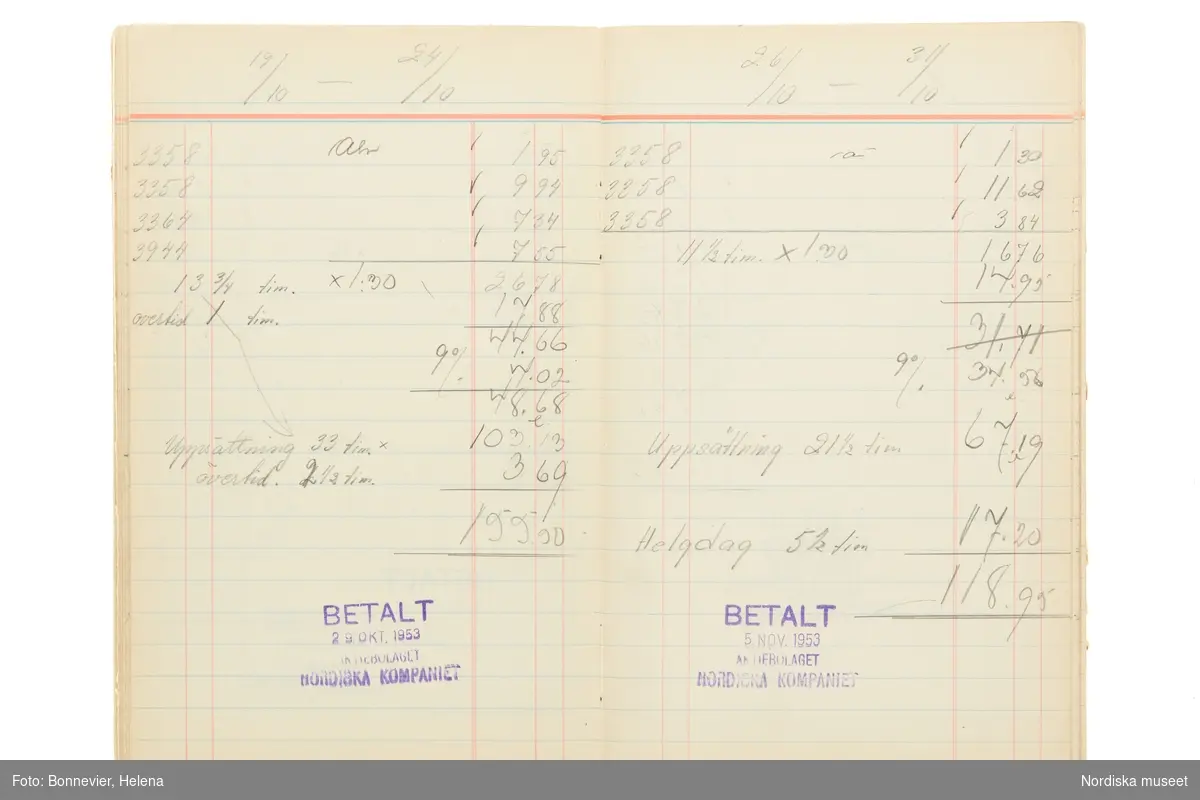 19/10 — 24/10
3358 1 95
3358 9 94
3364 7 34
3944 7 55
13 3/4 tim. × 1:30 26 78
17 88
övertid 1 tim.
44.66
9% 4.02
48.68
Uppsättning 33 tim. × 103.13
övertid. 2 1/2 tim. 3 69
155.50
BETALT
29 OKT. 1953
AKTIEBOLAGET
NORDISKA KOMPANIET
26/10 — 31/10
3358 1 30
3358 11 62
3358 3 84
11 1/2 tim. × 1:30 16 76
14.95
31,71
9% 34.56
Uppsättning 21 1/2 tim 67.19
Helgdag 5 1/2 tim 17.20
118.95
BETALT
5 NOV. 1953
AKTIEBOLAGET
NORDISKA KOMPANIET
Foto: Bonnevier, Helena
Nordiska museet